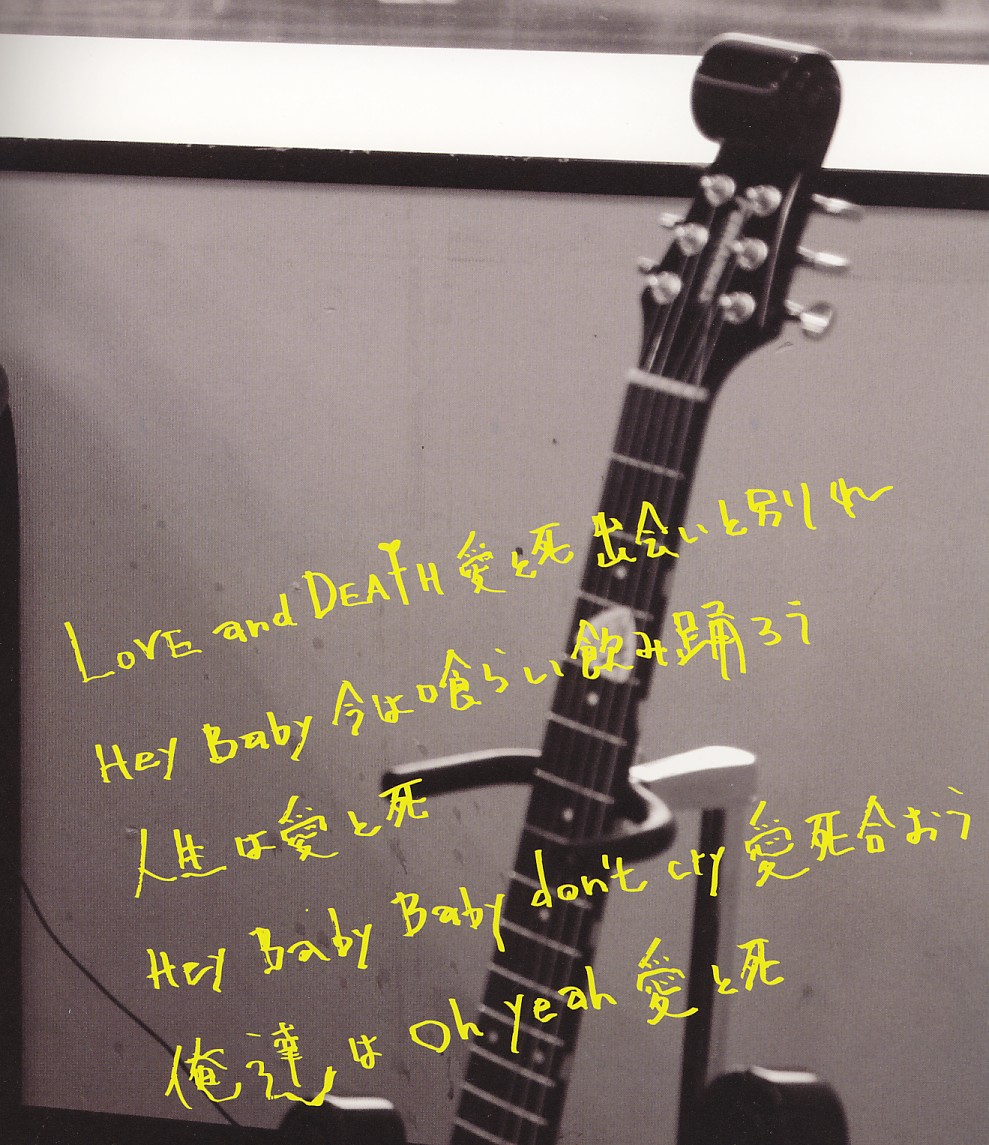 LOVE and DEATH 愛と死 出会いと別れ
Hey Baby 今は喰らい飲み踊ろう
人生は愛と死
Hey Baby Baby don't cry 愛死合おう
俺達は Oh yeah 愛と死